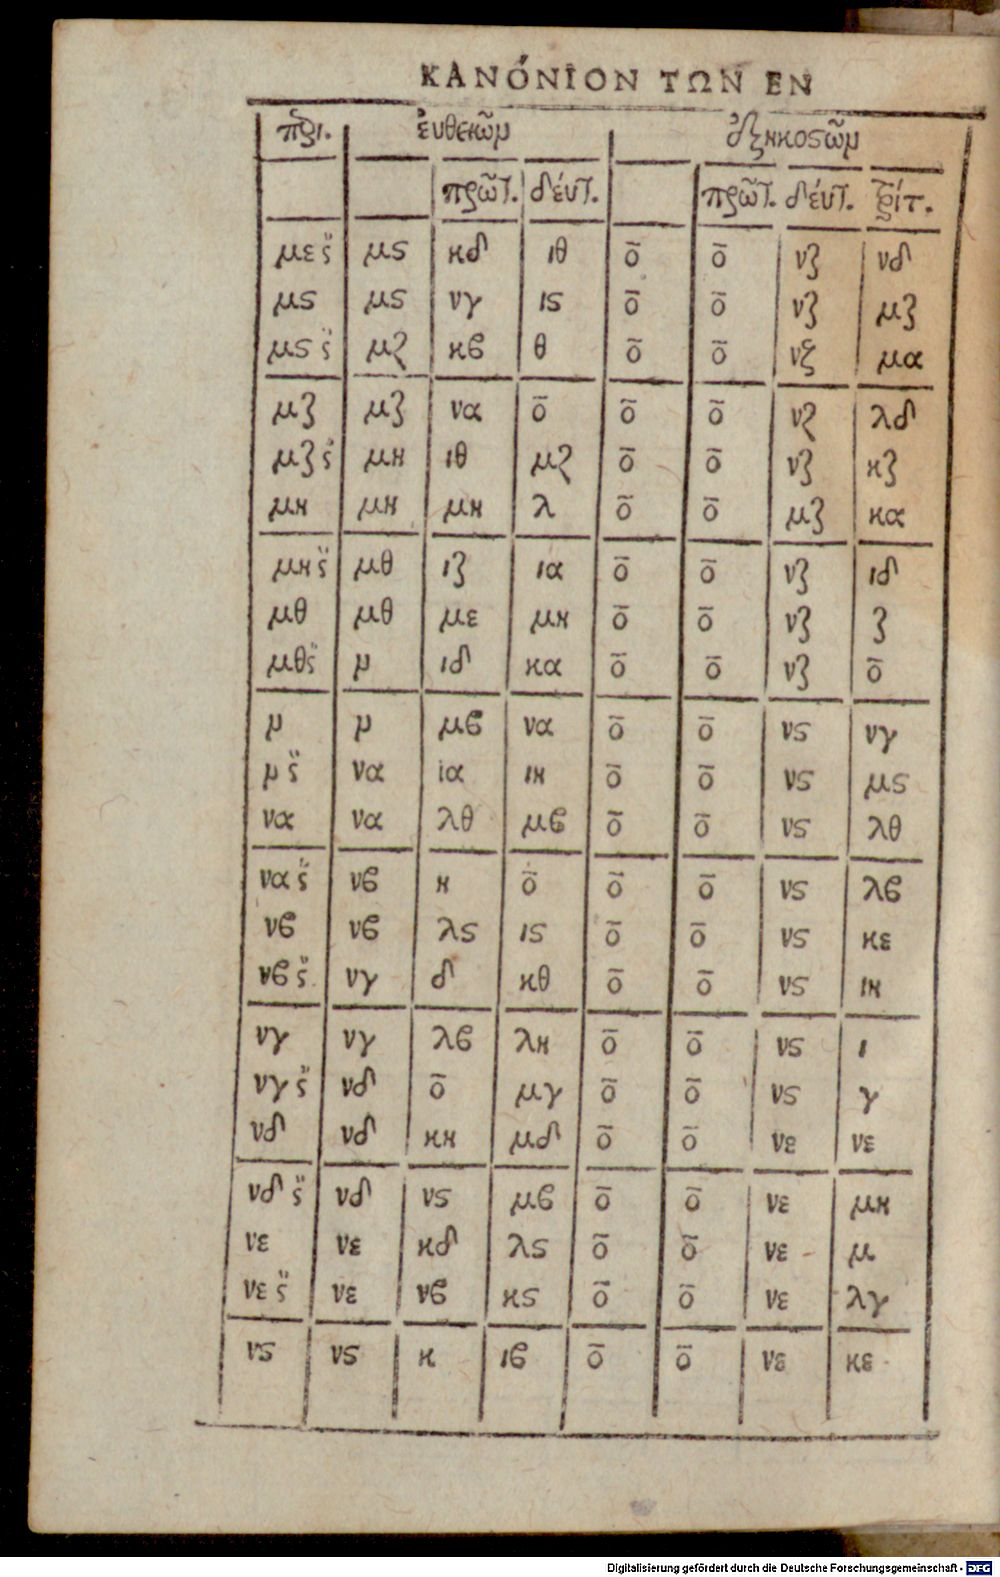 ΚΑΝΌΝΙΟΝ ΤΩΝ ΕΝ
πϩι. ἐυθειῶμ ἑξηκοςῶμ
πρῶτ. δέυτ. πρῶτ. δέυτ. τρίτ.
μες̈ μς κδ ιθ ο̄ ο̄ νζ νδ
μς μς νγ ις ο̄ ο̄ νζ μζ
μςς̈ μζ κβ θ ο̄ ο̄ νζ μα
μζ μζ να ο̄ ο̄ ο̄ νζ λδ
μζς̈ μη ιθ μζ ο̄ ο̄ νζ κζ
μη μη μη λ ο̄ ο̄ μζ κα
μης̈ μθ ιζ ια ο̄ ο̄ νζ ιδ
μθ μθ με μη ο̄ ο̄ νζ ζ
μθς̈ μ ιδ κα ο̄ ο̄ νζ ο̄
μ μ μβ να ο̄ ο̄ νς νγ
μς̈ να ια ιη ο̄ ο̄ νς μς
να να λθ μβ ο̄ ο̄ νς λθ
νας̈ νβ η ο̄ ο̄ ο̄ νς λβ
νβ νβ λς ις ο̄ ο̄ νς κε
νβς̈ νγ δ κθ ο̄ ο̄ νς ιη
νγ νγ λβ λη ο̄ ο̄ νς ι
νγς̈ νδ ο̄ μγ ο̄ ο̄ νς γ
νδ νδ κη μδ ο̄ ο̄ νε νε
νδς̈ νδ νς μβ ο̄ ο̄ νε μη
νε νε κδ λς ο̄ ο̄ νε μ
νες̈ νε νβ κς ο̄ ο̄ νε λγ
νς νς κ ιβ ο̄ ο̄ νε κε
Digitalisierung gefördert durch die Deutsche Forschungsgemeinschaft - DFG